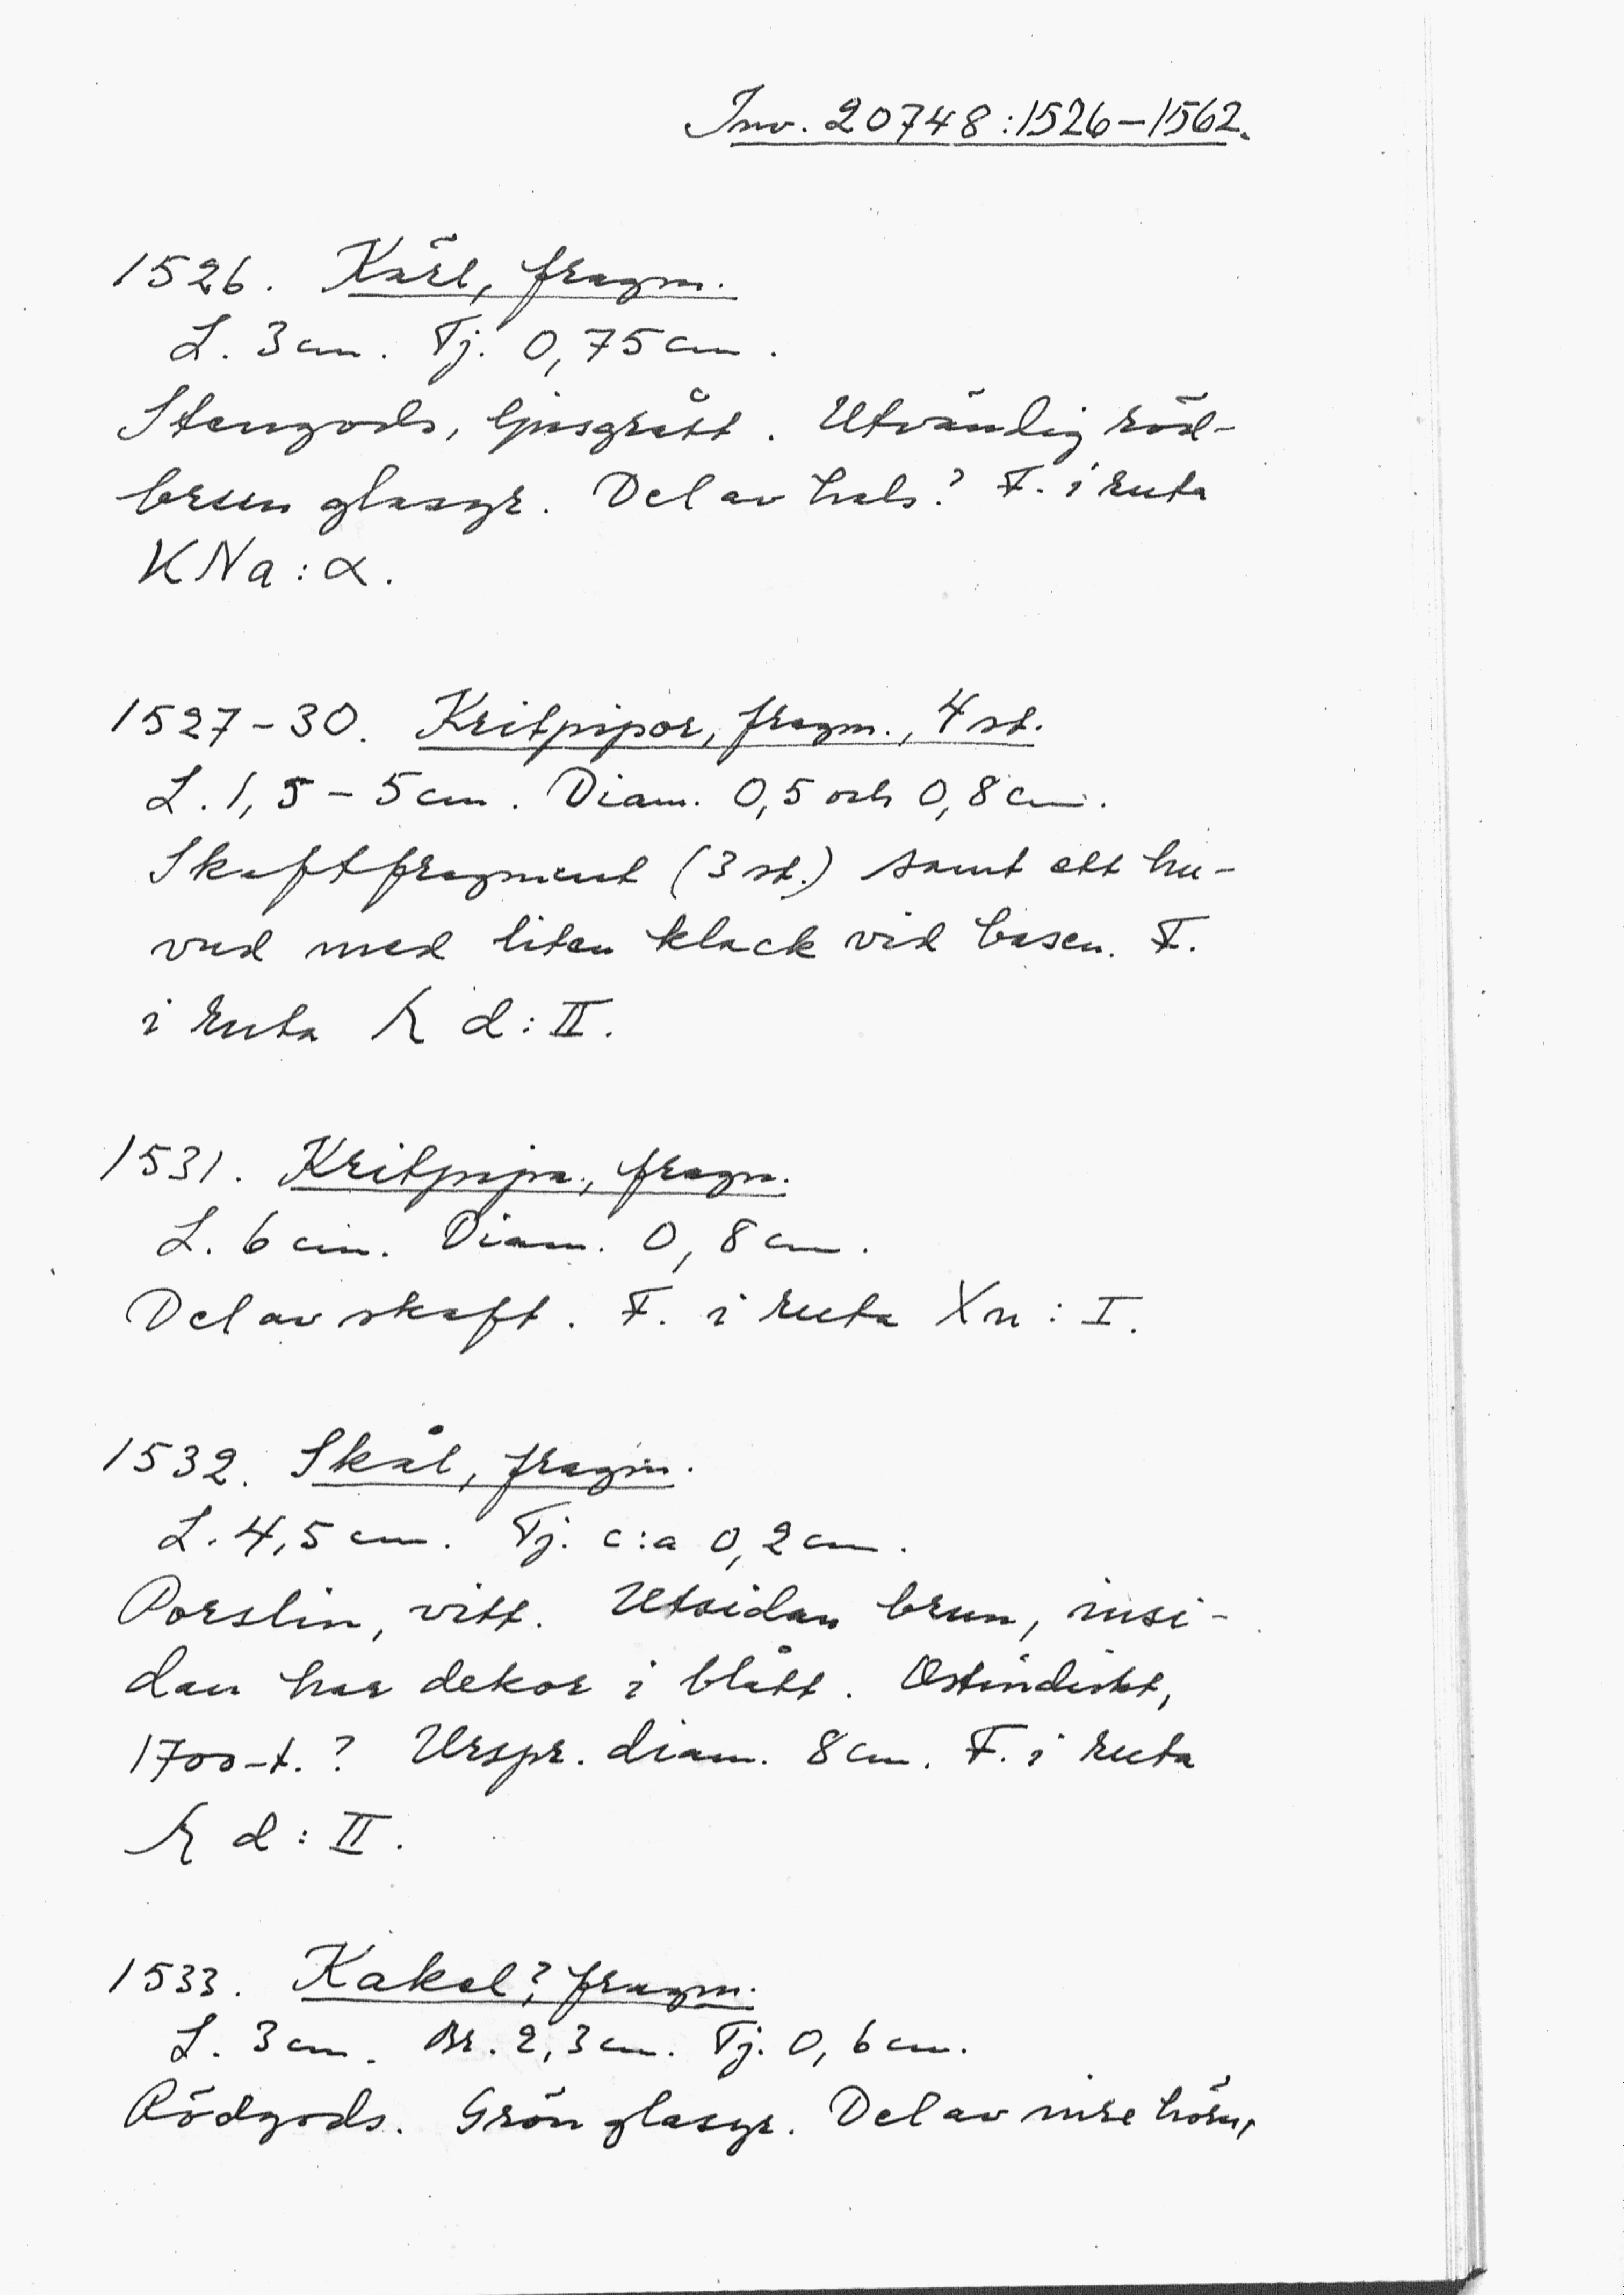 Inv. 20748:1526-1562.
1526. Kärl, fragm.
L. 3 cm. Tj. 0,75 cm.
Stengods, ljusgrått. Utvändig röd-
brun glasyr. Del av hals? F. i ruta
KNa:α.
1527-30. Kritpipor, fragm., 4 st.
L. 1,5-5 cm. Diam. 0,5 och 0,8 cm.
Skaftfragment (3 st.) samt ett hu-
vud med liten klack vid basen. F.
i ruta d:II.
1531. Kritpipa, fragm.
L. 6 cm. Diam. 0,8 cm.
Del av skaft. F. i ruta Xn: I.
1532. Skål, fragm.
L. 4,5 cm. Tj. c:a 0,2 cm.
Porslin, vitt. Utsidan brun, insi-
dan har dekor i blått. Ostindiskt,
1700-t.? Urspr. diam. 8 cm. F. i ruta
d:II.
1533. Kakel?, fragm.
L. 3 cm. Br. 2,3 cm. Tj. 0,6 cm.
Rödgods. Grön glasyr. Del av inre hörn,